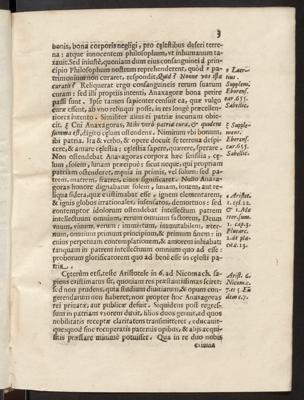 3
bonis, bona corporis negligi, pro cęlestibus deseri terre-
na: atque innocentem philosophum, ut inhumanum ta-
xauit. Sed iniustè, quoniam dum eius consanguinei à prin-
cipio Philosophum nostrum reprehenderent, quòd pa-
trimonium non curaret, respondit. Quid? Nonne vos ista
curatis? Reliquerat ergo consanguineis rerum suarum
curam: sed illi propriis intenti, Anaxagoræ bona perire
passi sunt. Ipse tamen sapienter censuit ea, quæ vulgo
curæ essent, ab vno relinqui posse, in res longè præcellen-
tiores intento. Similiter alius ei patriæ incuriam obie-
cit. Cui Anaxagoras, Mihi verò patria curæ, & quidem
summa est, digito cęlum ostendens. Nimirum vbi bonum,
ibi patria. Ita & verbo, & opere docuit se terrena despi-
cere, amare cęlestia: cęlestia sapere, quærere, sperare.
Non ostendebat Anaxagoras corpora hæc sensilia, cę-
lum, solem, lunam præcipuè: sicut neque, qui propriam
patriam ostenderet, mœnia in primis, vel solum: sed pa-
trem, matrem, fratres, ciues significaret. Nullo Anaxa-
goras honore dignabatur solem, lunam, ignem, aut re-
liqua sidera, quæ existimabat esse
& ignis globos irrationales, insensatos, demortuos: sed
contemptor idolorum ostendebat intellectum patrem
intellectuum omnium, rerum omnium factorem, Deum
vnum, vnum, verum: immortalem, inmutabilem, æter-
num, omnium primum principium, & primum finem: in
cuius perpetuam contemplationem, & amorem inhiabat:
tanquam in patrem intellectuum omnium quo ad esse:
proborum glorificatorem quo ad bene esse in cęlesti pa-
tria.
Cęterùm etsi, teste Aristotele in 6. ad Nicomach. sa-
piens existimatus sit, quoniam res præstantissimas sciret:
sed non prudens, quia studium diuitiarum, & opum con-
gerendarum non haberet; non propter hoc Anaxagoras
rei priuatæ, aut publicæ defuit. Siquidem posse regres-
sum in patriam vxorem duxit, filios duos genuit, ad quos
nobilitatis receptæ claritatem transmitteret, educauit-
que: quod sine recuperatis paternis opibus, & aliis acqui-
sitis præstare minimè potuisset. Qua in re duo nobis
eximia
Laer-
tius.
Supplem.
Eborens.
tar. 655.
Sabellic.
Supple-
ment.
Eborens.
tar. 655.
Sabellic.
Aristot.
Plutarc.
Arist. 6.
Nicom. c.
7. & 5. Eu-
dem. c. 7.